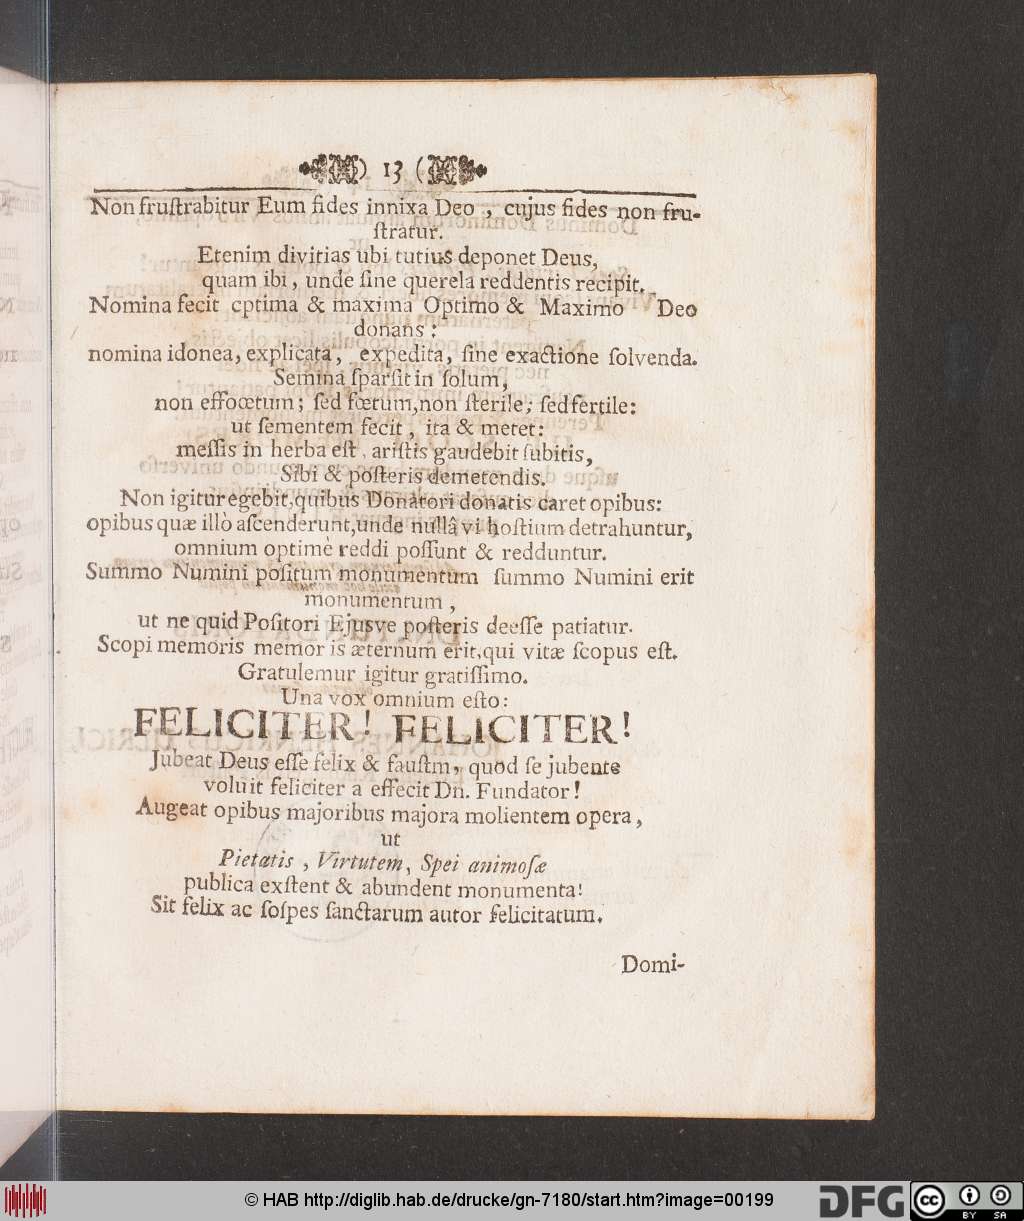 ) 13 (
Non fruſtrabitur Eum fides innixa Deo , cujus fides non fru-
ſtratur.
Etenim divitias ubi tutius deponet Deus,
quam ibi, unde ſine querela reddentis recipit.
Nomina fecit cptima & maxima Optimo & Maximo Deo
donans :
nomina idonea, explicata, expedita, ſine exactione ſolvenda.
Semina ſparſit in ſolum,
non effoœtum; ſed fœtum, non ſterile; ſed fertile:
ut ſementem fecit, ita & metet:
meſſis in herba eſt, ariſtis gaudebit ſubitis,
Sibi & poſteris demetendis.
Non igitur egebit, quibus Donatori donatis caret opibus:
opibus quæ illò aſcenderunt, unde nullâ vi hoſtium detrahuntur,
omnium optimè reddi poſſunt & redduntur.
Summo Numini poſitum monumentum ſummo Numini erit
monumentum,
ut ne quid Poſitori Ejusve poſteris deeſſe patiatur.
Scopi memoris memor is æternum erit, qui vitæ ſcopus eſt.
Gratulemur igitur gratiſſimo.
Una vox omnium eſto:
FELICITER! FELICITER!
Jubeat Deus eſſe felix & fauſtm, quod ſe jubente
voluit feliciter a effecit Dn. Fundator!
Augeat opibus majoribus majora molientem opera,
ut
Pietatis, Virtutem, Spei animoſæ
publica exſtent & abundent monumenta!
Sit felix ac ſoſpes ſanctarum autor felicitatum.
Domi-
© HAB http://diglib.hab.de/drucke/gn-7180/start.htm?image=00199
DFG
cc BY SA